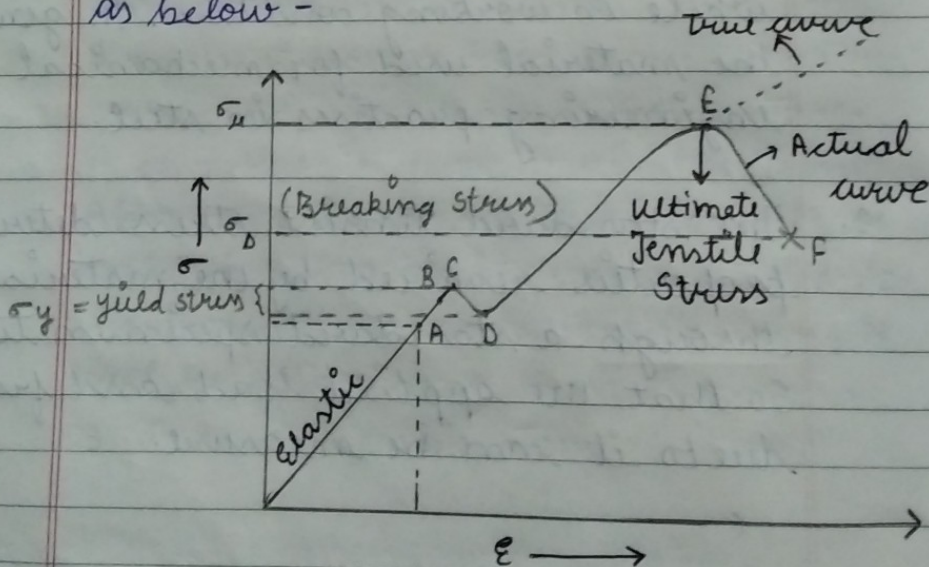 as below -
True curve
E
σu
Actual
curve
(Breaking Stress)
σb
σ
Ultimate
Tenstile
Stress
F
B C
σy = yield stress {
A
D
Elastic
ε